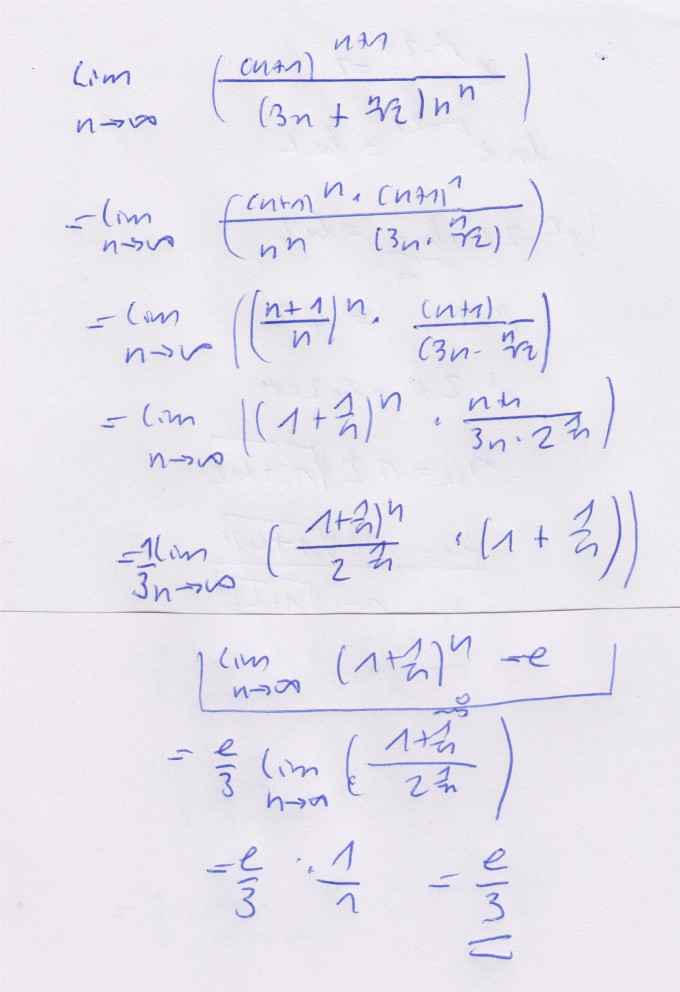 lim n→∞ ( (n+1)^{n+1} / (3n + ⁿ√2) nⁿ )
= lim n→∞ ( (n+1)ⁿ · (n+1)¹ / nⁿ (3n · ⁿ√2) )
= lim n→∞ ( ((n+1)/n)ⁿ · (n+1) / (3n · ⁿ√2) )
= lim n→∞ ( (1 + 1/n)ⁿ · n+1 / 3n · 2^{1/n} )
= 1/3 lim n→∞ ( 1 + 1/n)ⁿ / 2^{1/n} · (1 + 1/n) )
lim n→∞ (1 + 1/n)ⁿ = e
= e/3 lim n→∞ ( 1 + 1/n →0 / 2^{1/n} )
= e/3 · 1/1 = e/3